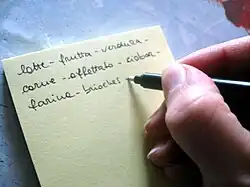 latte - frutta - verdura -
carne - affettato - 
farina - brioches -